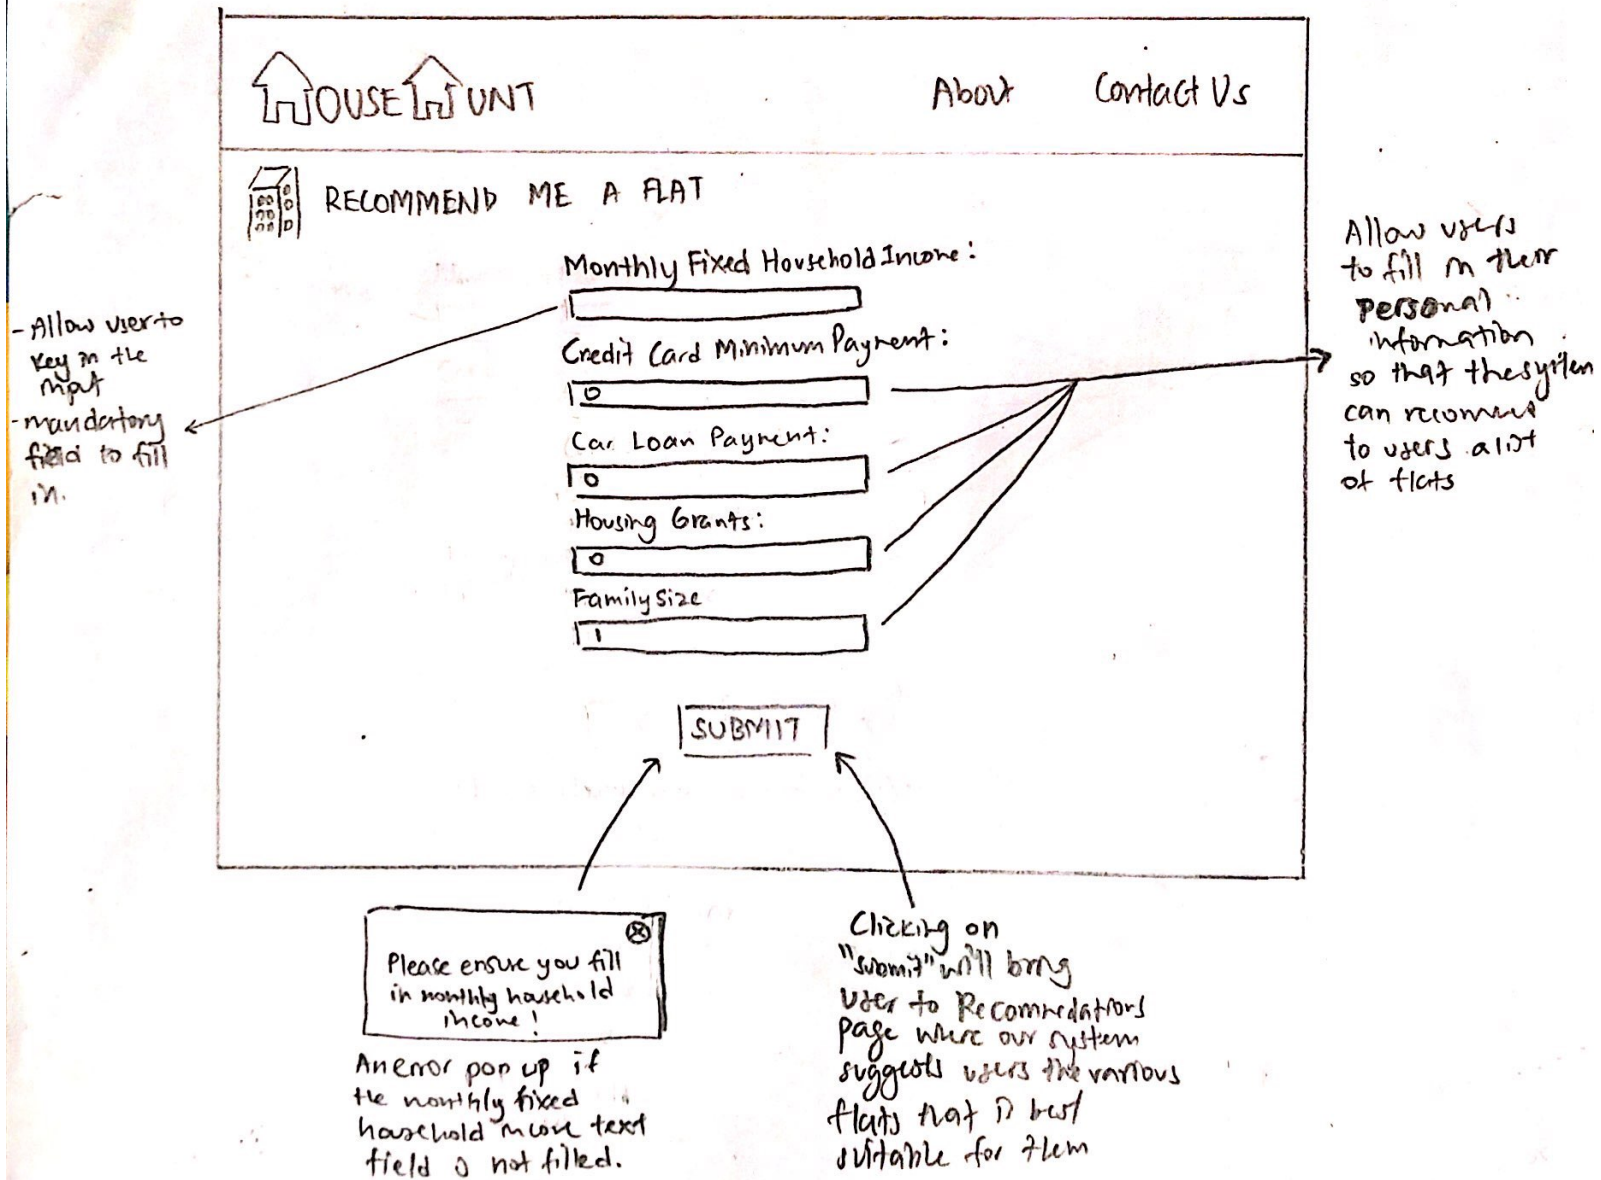 HOUSEHUNT
About
Contact Us
RECOMMEND ME A FLAT
Monthly Fixed Household Income:
Credit Card Minimum Payment:
0
Car Loan Payment:
0
Housing Grants:
0
Family Size
1
SUBMIT
- Allow user to
key in the
input
- mandatory
field to fill
in.
Allow users
to fill in their
personal
information
so that the system
can recommend
to users a list
of flats
Please ensure you fill
in monthly household
income!
An error pop up if
the monthly fixed
household income text
field is not filled.
Clicking on
"submit" will bring
user to Recommedations
page where our system
suggests users the various
flats that is best
suitable for them